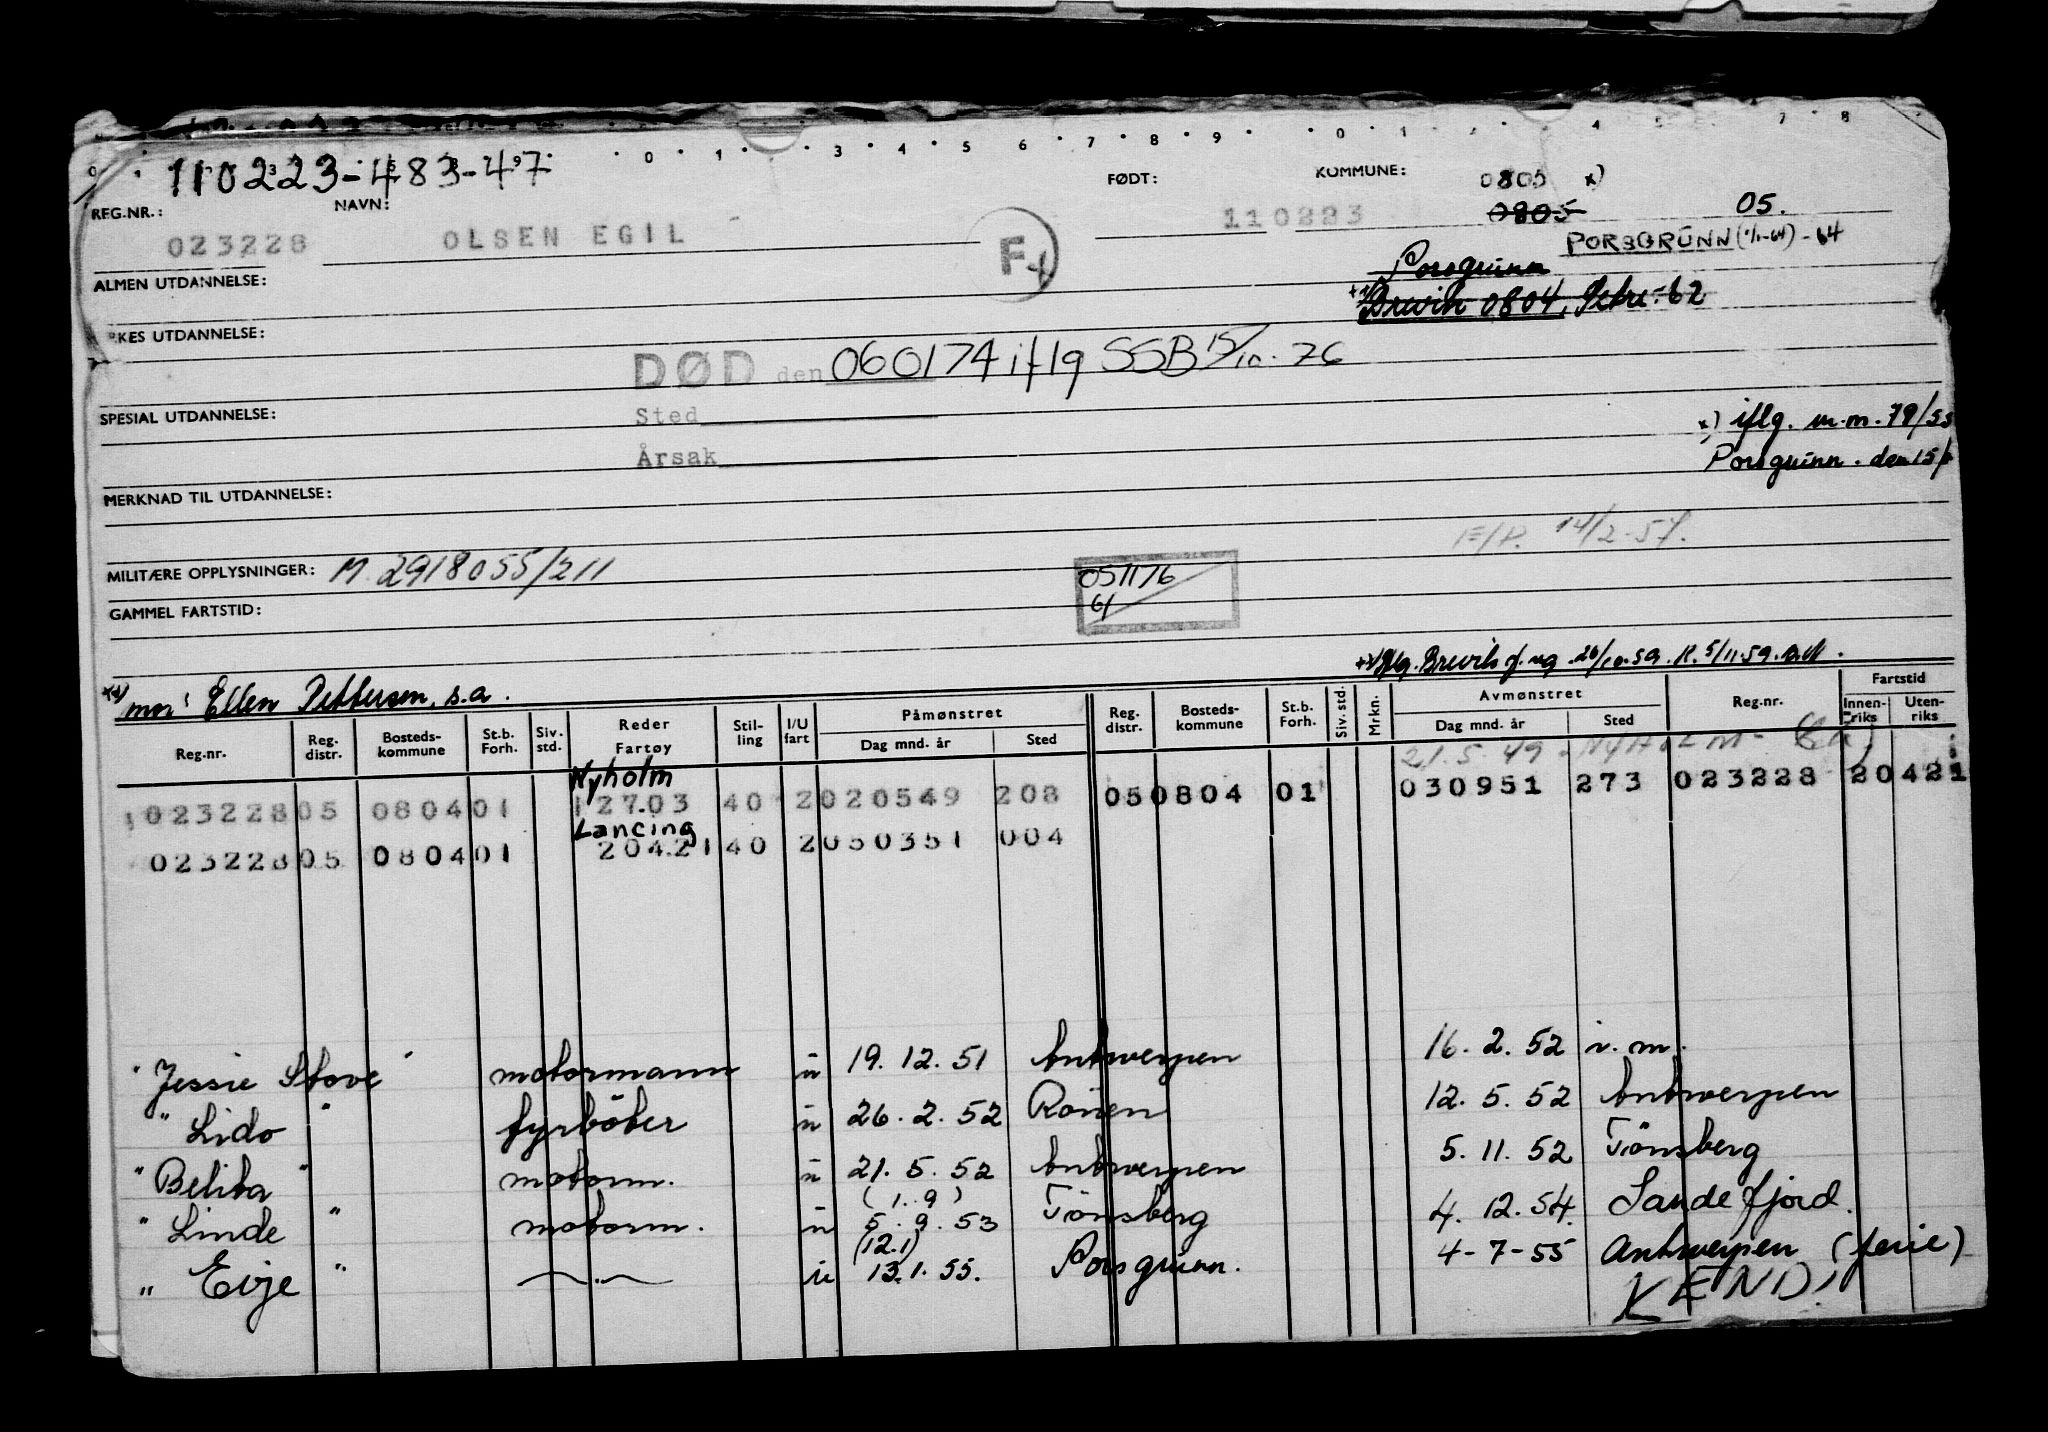 110223-483-47
REG.NR.: NAVN: FØDT: KOMMUNE: 0805 x)
023228 OLSEN EGIL F 110223 0805 05.
PORSGRUNN (1/1-64) - 64
ALMEN UTDANNELSE: Porsgrunn
Brevik 0804, Febr-62
RKES UTDANNELSE:
DØD den 060174 iflg SSB 15/10-76
SPESIAL UTDANNELSE: Sted
x) iflg. m.m. 79/55
Årsak Porsgrunn. den 15/
MERKNAD TIL UTDANNELSE:
14/2-57.
MILITÆRE OPPLYSNINGER: M. 2918055/211
051176
61
GAMMEL FARTSTID:
Iflg. Brevik 26/10.59. R. 5/11.59.
mor: Ellen Pettersen, s.a.
Reg.nr. Reg. distr. Bosteds-kommune St.b. Forh. Siv. std. Reder Fartøy Stil-ling I/U fart Påmønstret Dag mnd. år Sted Reg. distr. Bosteds-kommune St.b. Forh. Siv. std. Mrkn. Avmønstret Dag mnd. år Sted Reg.nr. Fartstid Innen-riks Uten-riks
Nyholm 21.5.49 - NYHOLM -
023228 05 0804 01 12703 40 2 020549 208 05 0804 01 030951 273 023228 20421
Lancing
023228 05 0804 01 20421 40 2 050351 004
" Jessie Stove " motormann u 19.12.51 Antwerpen 16.2.52 i.m.
" Lido " fyrböter u 26.2.52 Rouen 12.5.52 Antwerpen
" Belita " motorm. u 21.5.52 Antwerpen 5.11.52 Tönsberg
(1.9)
" Linde " motorm. u 5.9.53 Tönsberg 4.12.54. Sandefjord.
(12.1)
" Evje " —"— u 13.1.55. Porsgrunn. 4-7-55 Antwerpen (ferie)
KENDI